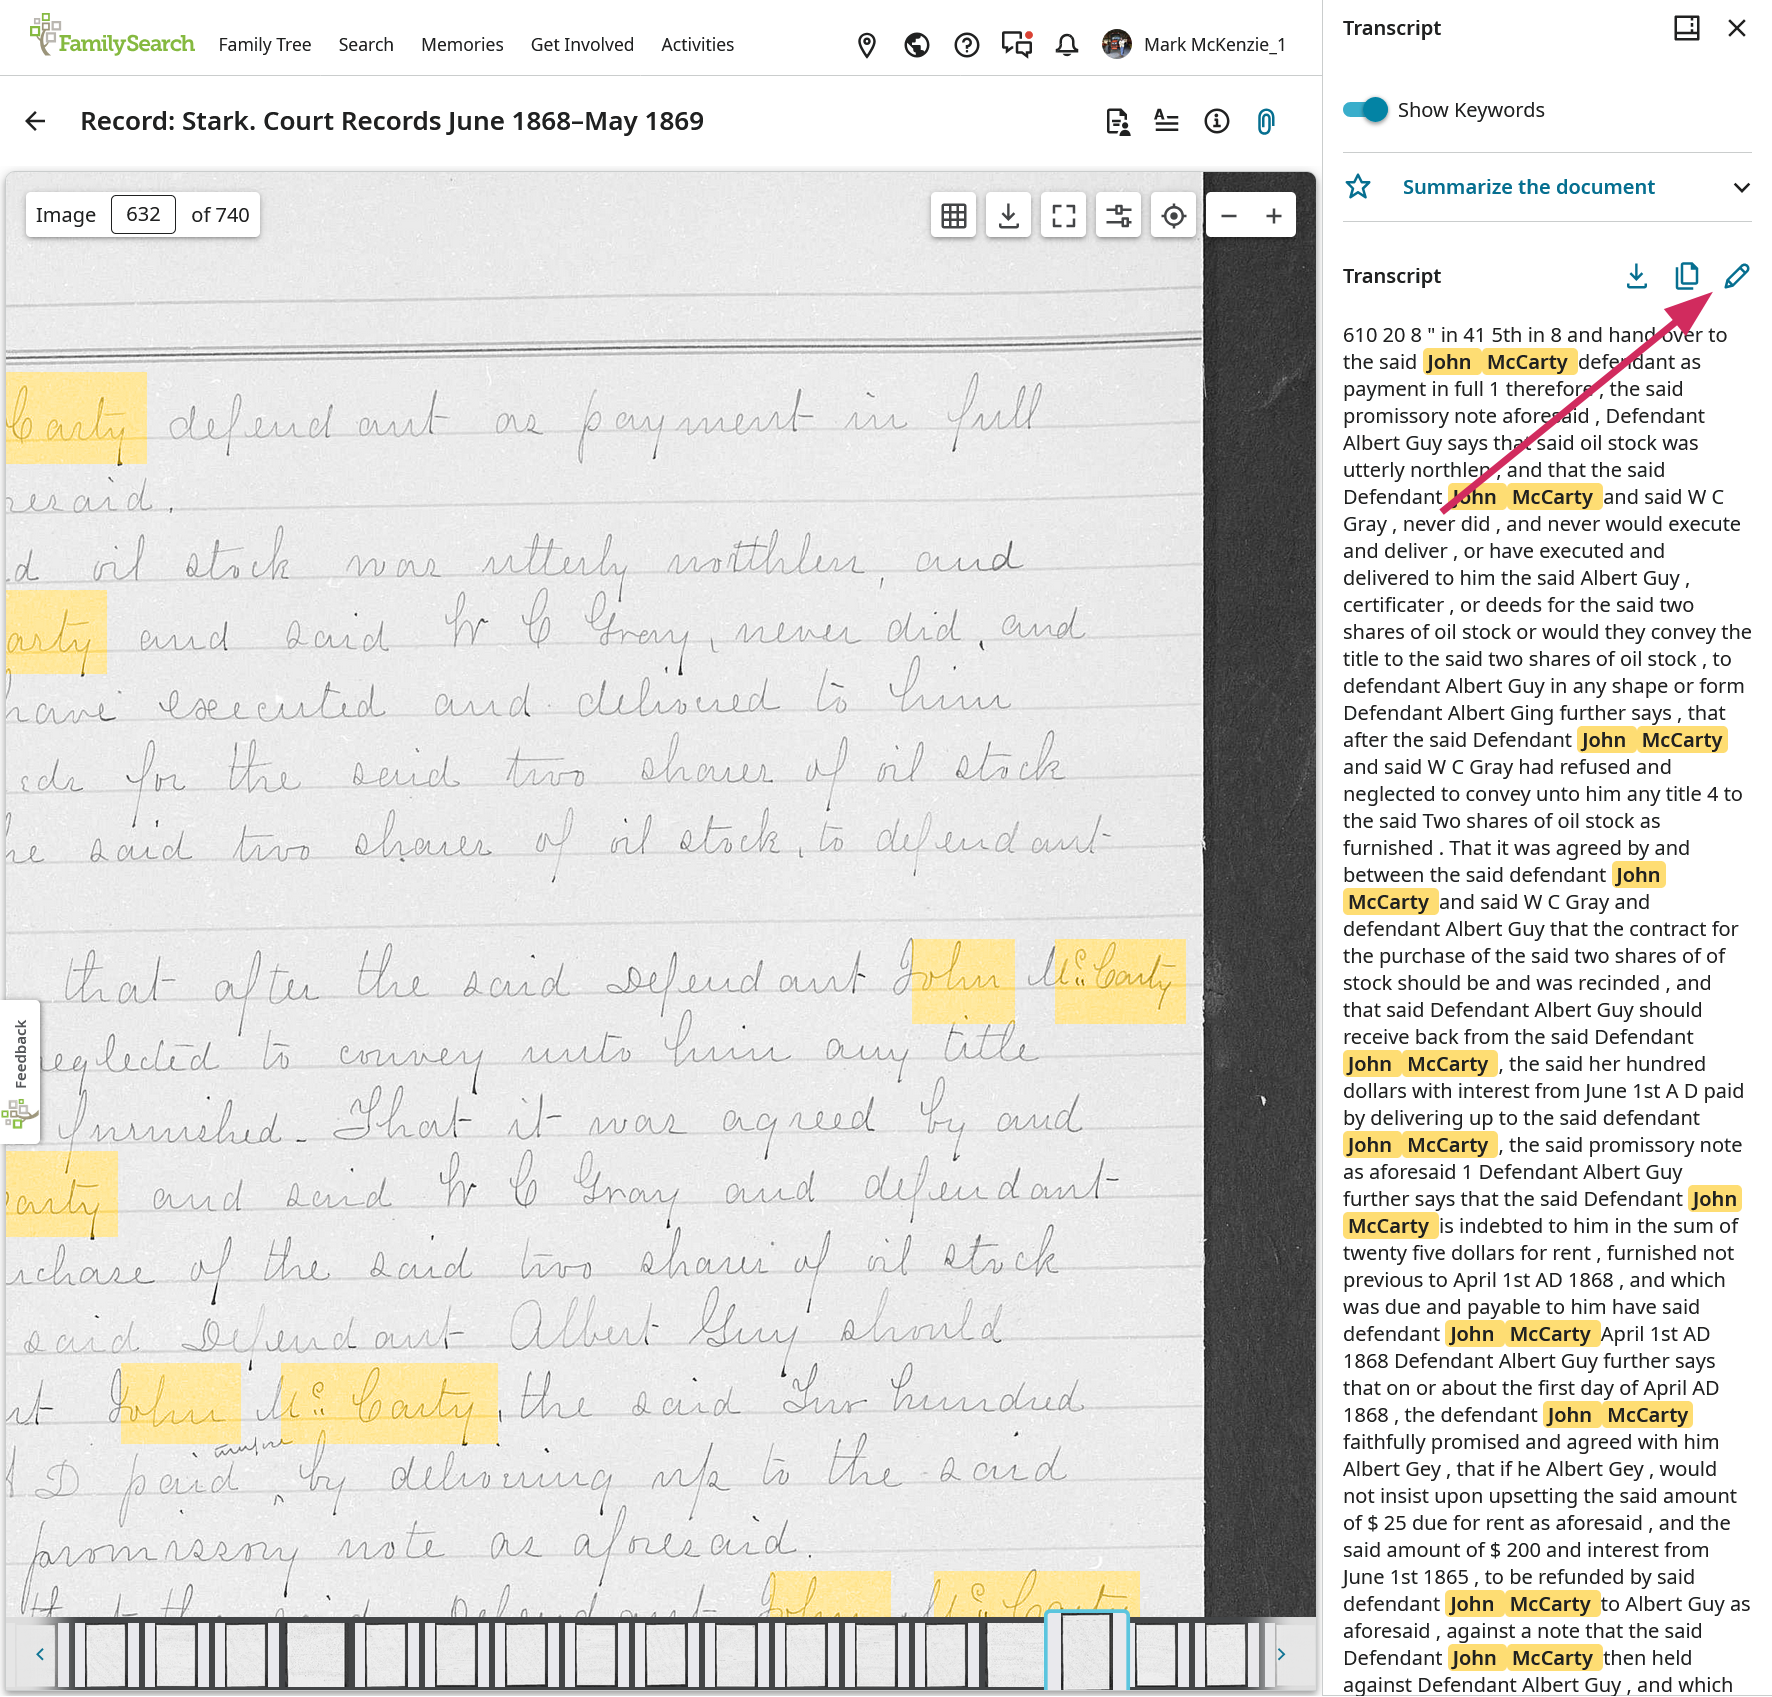 FamilySearch
Family Tree
Search
Memories
Get Involved
Activities
Mark McKenzie_1
Record: Stark. Court Records June 1868–May 1869
Image 632 of 740
Carty defendant as payment in full
resaid.
d oil stock was utterly northlen, and
arty and said W C Gray, never did, and
have executed and delivered to him
eds for the said two shares of oil stock
he said two shares of oil stock, to defendant
that after the said Defendant John McCarty
neglected to convey unto him any title
furnished. That it was agreed by and
Carty and said W C Gray and defendant
rchase of the said two shares of oil stock
said Defendant Albert Guy should
nt John McCarty, the said Two hundred
D paid by delivering up to the said
promissory note as aforesaid.
the said Defendant John McCarty
Feedback
Transcript
Show Keywords
Summarize the document
Transcript
610 20 8 " in 41 5th in 8 and hand over to
the said John McCarty defendant as
payment in full 1 therefore , the said
promissory note aforesaid , Defendant
Albert Guy says that said oil stock was
utterly northlen , and that the said
Defendant John McCarty and said W C
Gray , never did , and never would execute
and deliver , or have executed and
delivered to him the said Albert Guy ,
certificater , or deeds for the said two
shares of oil stock or would they convey the
title to the said two shares of oil stock , to
defendant Albert Guy in any shape or form
Defendant Albert Ging further says , that
after the said Defendant John McCarty
and said W C Gray had refused and
neglected to convey unto him any title 4 to
the said Two shares of oil stock as
furnished . That it was agreed by and
between the said defendant John
McCarty and said W C Gray and
defendant Albert Guy that the contract for
the purchase of the said two shares of of
stock should be and was recinded , and
that said Defendant Albert Guy should
receive back from the said Defendant
John McCarty , the said her hundred
dollars with interest from June 1st A D paid
by delivering up to the said defendant
John McCarty , the said promissory note
as aforesaid 1 Defendant Albert Guy
further says that the said Defendant John
McCarty is indebted to him in the sum of
twenty five dollars for rent , furnished not
previous to April 1st AD 1868 , and which
was due and payable to him have said
defendant John McCarty April 1st AD
1868 Defendant Albert Guy further says
that on or about the first day of April AD
1868 , the defendant John McCarty
faithfully promised and agreed with him
Albert Gey , that if he Albert Gey , would
not insist upon upsetting the said amount
of $ 25 due for rent as aforesaid , and the
said amount of $ 200 and interest from
June 1st 1865 , to be refunded by said
defendant John McCarty to Albert Guy as
aforesaid , against a note that the said
Defendant John McCarty then held
against Defendant Albert Guy , and which